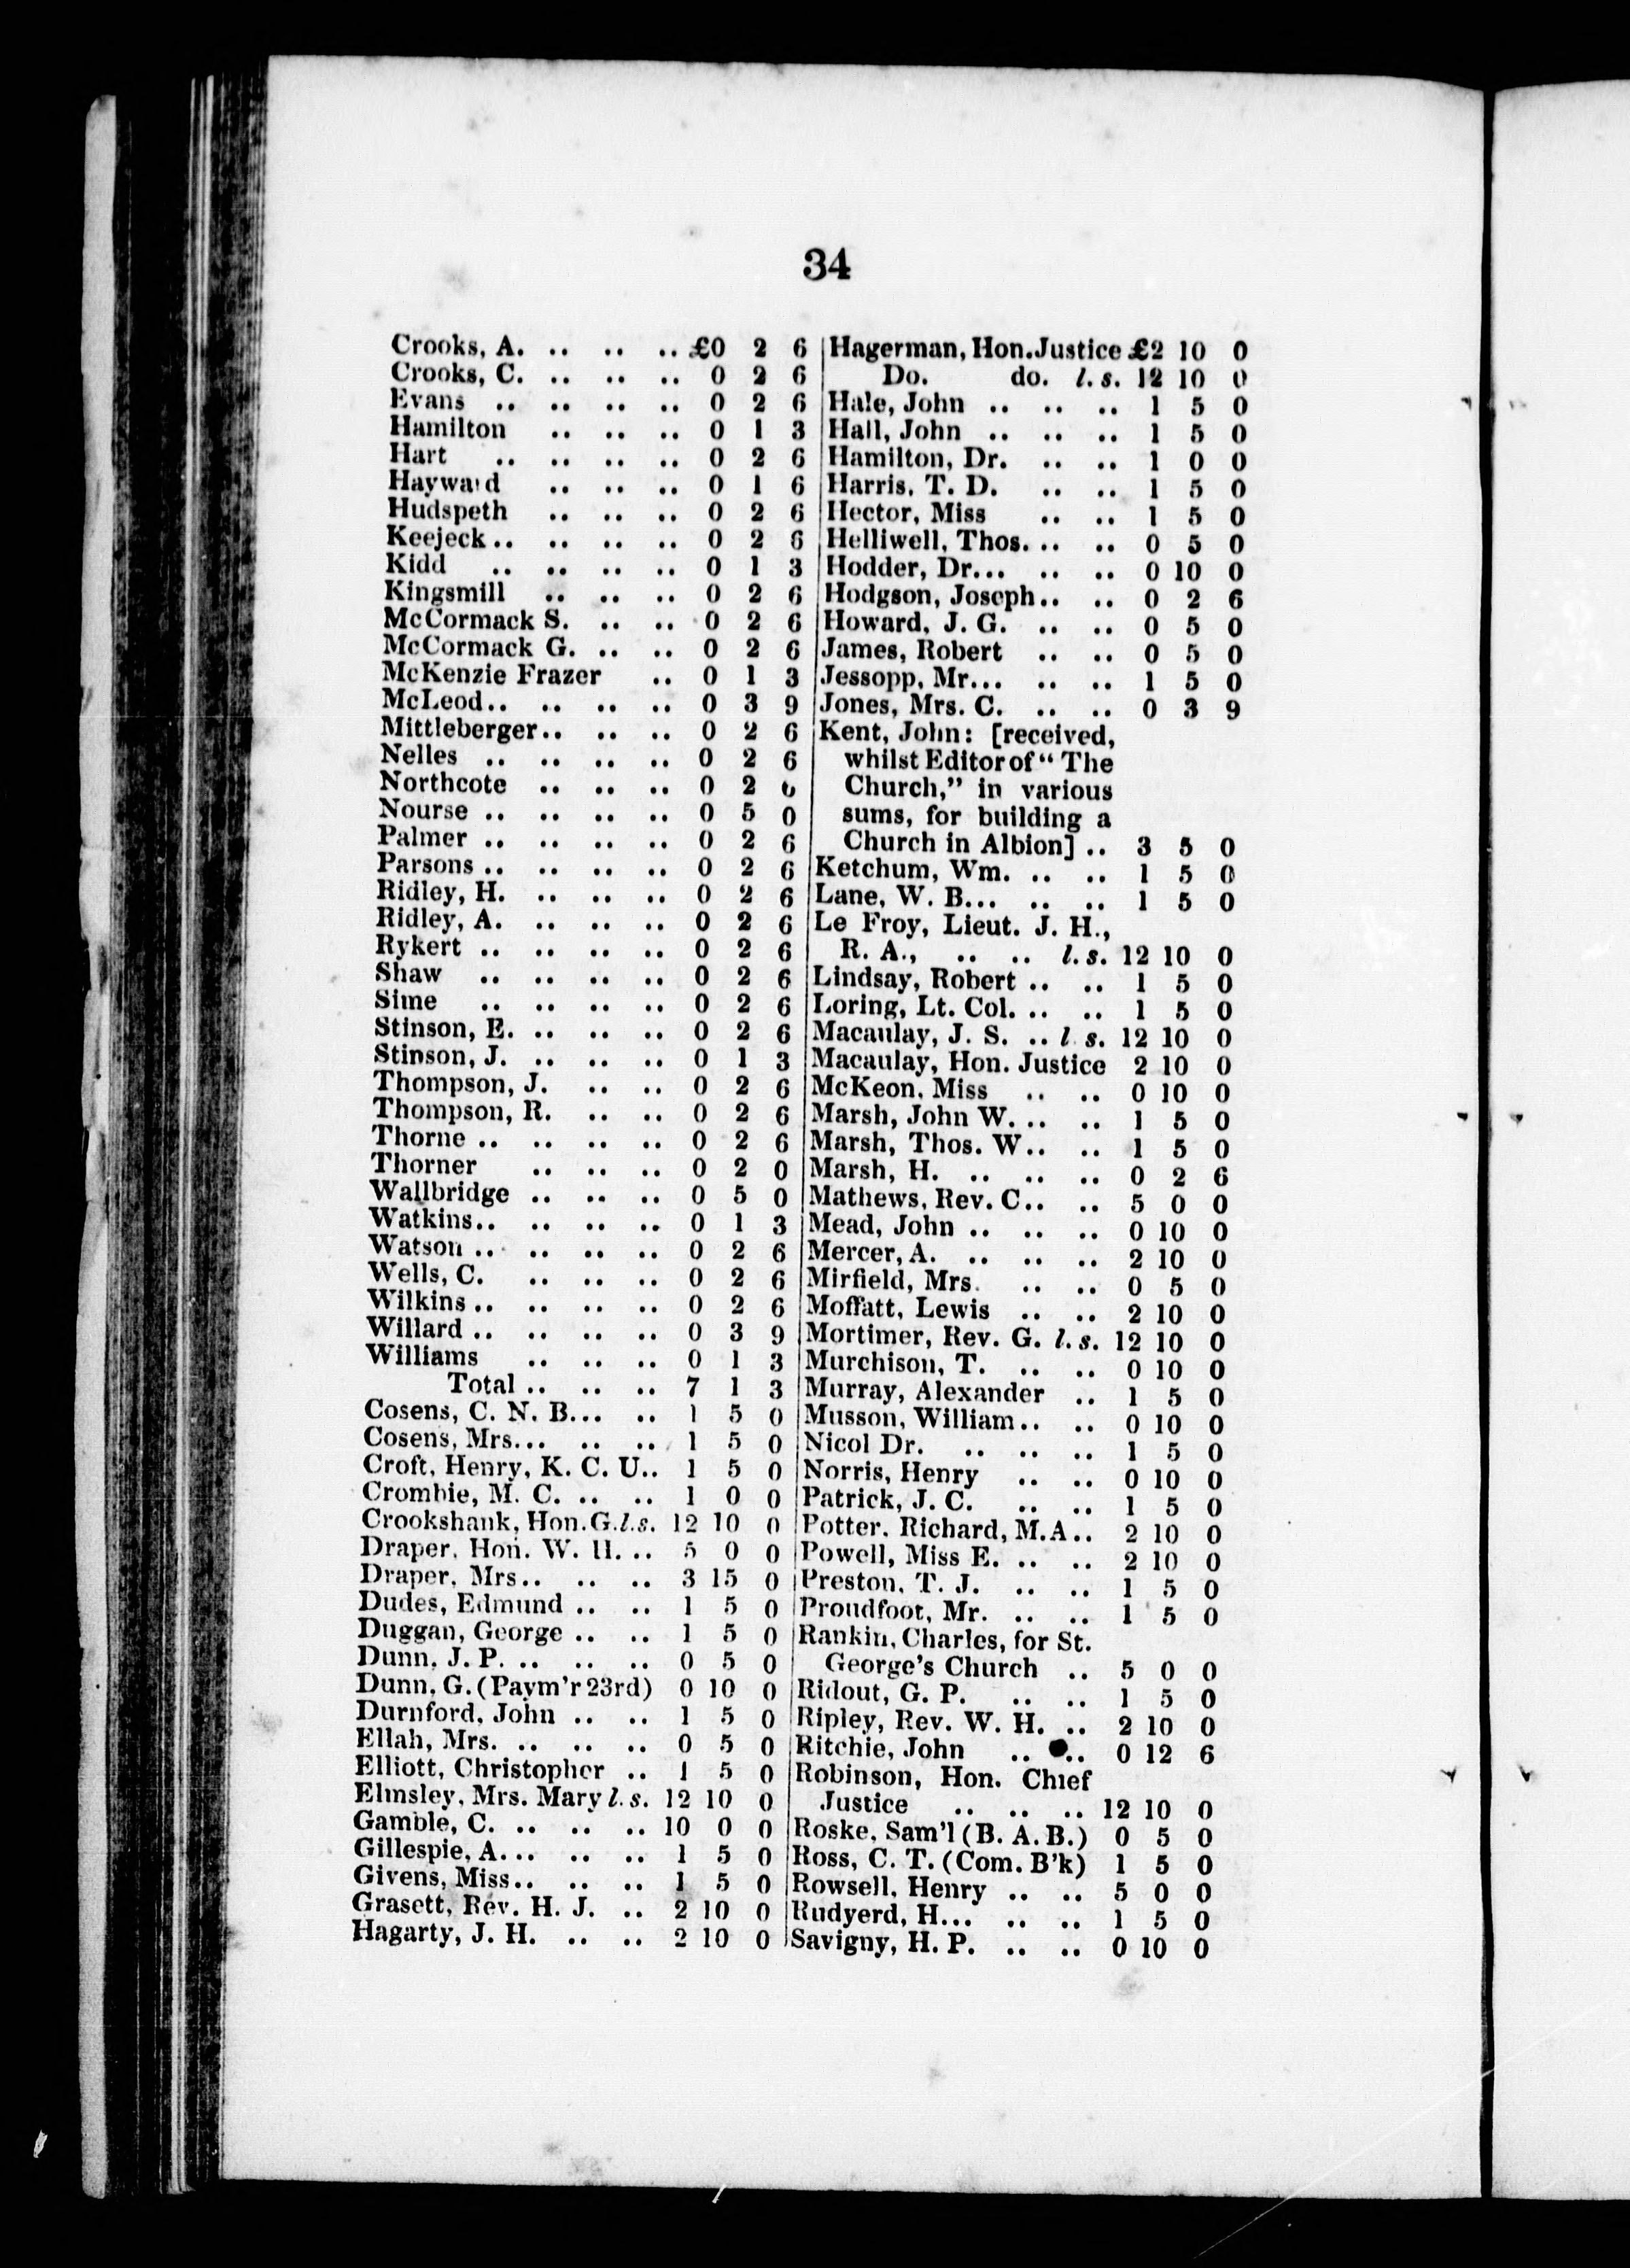 34
Crooks, A. .. .. .. £0 2 6
Crooks, C. .. .. .. 0 2 6
Evans .. .. .. .. 0 2 6
Hamilton .. .. .. 0 1 3
Hart .. .. .. .. 0 2 6
Hayward .. .. .. 0 1 6
Hudspeth .. .. .. 0 2 6
Keejeck .. .. .. .. 0 2 6
Kidd .. .. .. .. 0 1 3
Kingsmill .. .. .. 0 2 6
McCormack S. .. .. 0 2 6
McCormack G. .. .. 0 2 6
McKenzie Frazer .. 0 1 3
McLeod.. .. .. .. 0 3 9
Mittleberger.. .. .. 0 2 6
Nelles .. .. .. .. 0 2 6
Northcote .. .. .. 0 2 6
Nourse .. .. .. .. 0 5 0
Palmer .. .. .. .. 0 2 6
Parsons .. .. .. .. 0 2 6
Ridley, H. .. .. .. 0 2 6
Ridley, A. .. .. .. 0 2 6
Rykert .. .. .. .. 0 2 6
Shaw .. .. .. .. 0 2 6
Sime .. .. .. .. 0 2 6
Stinson, E. .. .. .. 0 2 6
Stinson, J. .. .. .. 0 1 3
Thompson, J. .. .. 0 2 6
Thompson, R. .. .. 0 2 6
Thorne .. .. .. .. 0 2 6
Thorner .. .. .. 0 2 0
Wallbridge .. .. .. 0 5 0
Watkins.. .. .. .. 0 1 3
Watson .. .. .. .. 0 2 6
Wells, C. .. .. .. 0 2 6
Wilkins .. .. .. .. 0 2 6
Willard .. .. .. .. 0 3 9
Williams .. .. .. 0 1 3
Total .. .. .. 7 1 3
Cosens, C. N. B... .. 1 5 0
Cosens, Mrs... .. .. 1 5 0
Croft, Henry, K. C. U.. 1 5 0
Crombie, M. C. .. .. 1 0 0
Crookshank, Hon. G. l.s. 12 10 0
Draper, Hon. W. H. .. 5 0 0
Draper, Mrs.. .. .. 3 15 0
Dudes, Edmund .. .. 1 5 0
Duggan, George .. .. 1 5 0
Dunn, J. P. .. .. .. 0 5 0
Dunn, G. (Paym'r 23rd) 0 10 0
Durnford, John .. .. 1 5 0
Ellah, Mrs. .. .. .. 0 5 0
Elliott, Christopher .. 1 5 0
Elmsley, Mrs. Mary l.s. 12 10 0
Gamble, C. .. .. .. 10 0 0
Gillespie, A... .. .. 1 5 0
Givens, Miss.. .. .. 1 5 0
Grasett, Rev. H. J. .. 2 10 0
Hagarty, J. H. .. .. 2 10 0
Hagerman, Hon. Justice £2 10 0
Do. do. l. s. 12 10 0
Hale, John .. .. .. 1 5 0
Hall, John .. .. .. 1 5 0
Hamilton, Dr. .. .. 1 0 0
Harris, T. D. .. .. 1 5 0
Hector, Miss .. .. 1 5 0
Helliwell, Thos. .. .. 0 5 0
Hodder, Dr... .. .. 0 10 0
Hodgson, Joseph.. .. 0 2 6
Howard, J. G. .. .. 0 5 0
James, Robert .. .. 0 5 0
Jessopp, Mr... .. .. 1 5 0
Jones, Mrs. C. .. .. 0 3 9
Kent, John: [received,
whilst Editor of "The
Church," in various
sums, for building a
Church in Albion] .. 3 5 0
Ketchum, Wm. .. .. 1 5 0
Lane, W. B... .. .. 1 5 0
Le Froy, Lieut. J. H.,
R. A., .. .. l. s. 12 10 0
Lindsay, Robert .. .. 1 5 0
Loring, Lt. Col. .. .. 1 5 0
Macaulay, J. S. .. l s. 12 10 0
Macaulay, Hon. Justice 2 10 0
McKeon, Miss .. .. 0 10 0
Marsh, John W. .. .. 1 5 0
Marsh, Thos. W.. .. 1 5 0
Marsh, H. .. .. .. 0 2 6
Mathews, Rev. C.. .. 5 0 0
Mead, John .. .. .. 0 10 0
Mercer, A. .. .. .. 2 10 0
Mirfield, Mrs. .. .. 0 5 0
Moffatt, Lewis .. .. 2 10 0
Mortimer, Rev. G. l. s. 12 10 0
Murchison, T. .. .. 0 10 0
Murray, Alexander .. 1 5 0
Musson, William.. .. 0 10 0
Nicol Dr. .. .. .. 1 5 0
Norris, Henry .. .. 0 10 0
Patrick, J. C. .. .. 1 5 0
Potter, Richard, M.A.. 2 10 0
Powell, Miss E. .. .. 2 10 0
Preston, T. J. .. .. 1 5 0
Proudfoot, Mr. .. .. 1 5 0
Rankin, Charles, for St.
George's Church .. 5 0 0
Ridout, G. P. .. .. 1 5 0
Ripley, Rev. W. H. .. 2 10 0
Ritchie, John .. .. 0 12 6
Robinson, Hon. Chief
Justice .. .. .. 12 10 0
Roske, Sam'l (B. A. B.) 0 5 0
Ross, C. T. (Com. B'k) 1 5 0
Rowsell, Henry .. .. 5 0 0
Rudyerd, H... .. .. 1 5 0
Savigny, H. P. .. .. 0 10 0